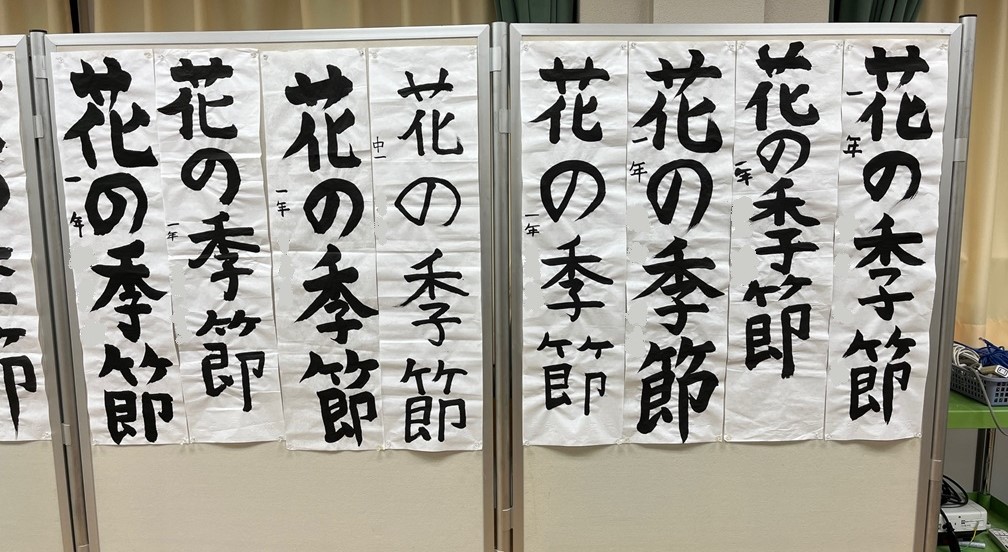 花の季節
一年
花の季節
一年
花の季節
一年
花の季節
一年
花の季節
中一
花の季節
一年
花の季節
一年
花の季節
一年